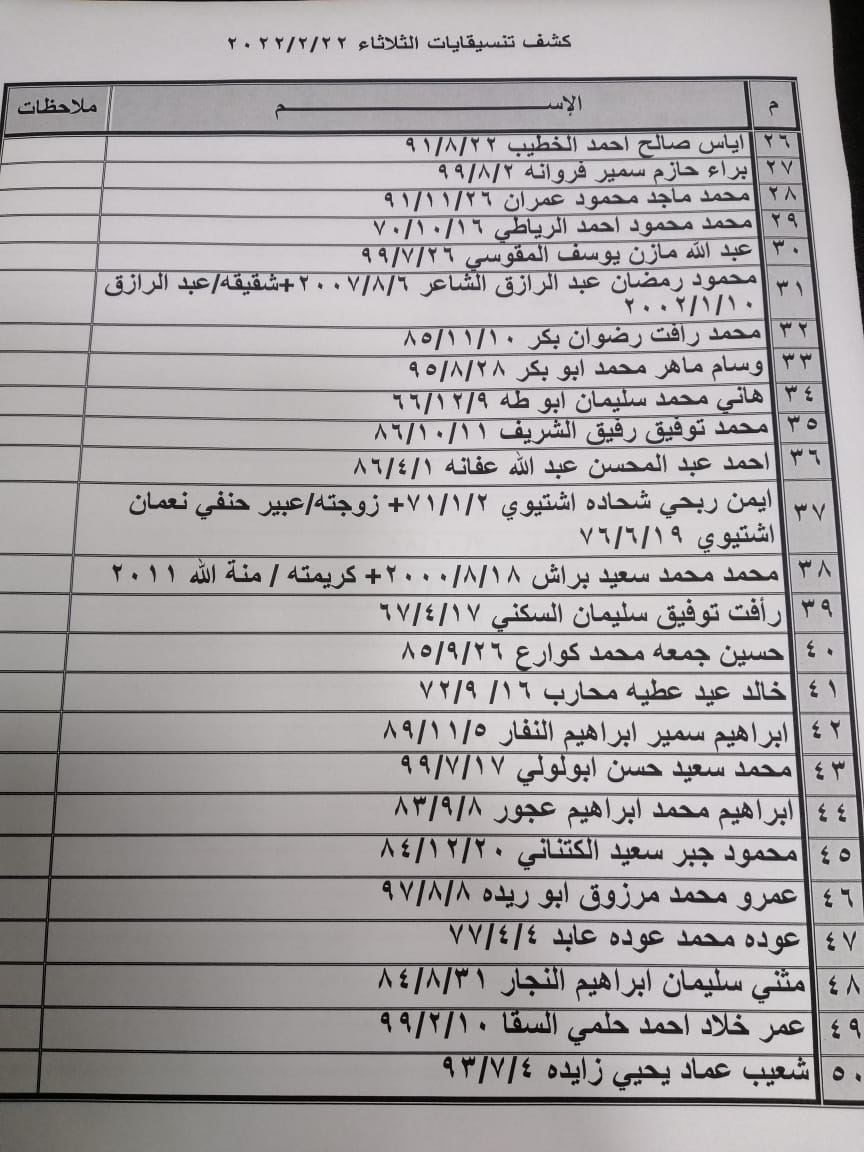 كشف تنسيقايات الثلاثاء ٢٠٢٢/٢/٢٢
م الإســـــــــم ملاحظات
٢٦ اياس صالح احمد الخطيب ٩١/٨/٢٢
٢٧ براء حازم سمير فروانه ٩٩/٨/٢
٢٨ محمد ماجد محمود عمران ٩١/١١/٢٦
٢٩ محمد محمود احمد الرياطي ٧٠/١٠/١٦
٣٠ عبد الله مازن يوسف المقوسي ٩٩/٧/٢٦
٣١ محمود رمضان عبد الرازق الشاعر ٢٠٠٧/٨/٦+شقيقه/عبد الرازق
٢٠٠٢/١/١٠
٣٢ محمد رافت رضوان بكر ٨٥/١١/١٠
٣٣ وسام ماهر محمد ابو بكر ٩٥/٨/٢٨
٣٤ هاني محمد سليمان ابو طه ٦٦/١٢/٩
٣٥ محمد توفيق رفيق الشريف ٨٦/١٠/١١
٣٦ احمد عبد المحسن عبد الله عفانه ٨٦/٤/١
٣٧ ايمن ربحي شحاده اشتيوي ٧١/١/٢+ زوجته/عبير حنفي نعمان
اشتيوي ٧٦/٦/١٩
٣٨ محمد محمد سعيد براش ٢٠٠٠/٨/١٨+ كريمته / منة الله ٢٠١١
٣٩ رأفت توفيق سليمان السكني ٦٧/٤/١٧
٤٠ حسين جمعه محمد كوارع ٨٥/٩/٢٦
٤١ خالد عيد عطيه محارب ١٦/ ٧٢/٩
٤٢ ابراهيم سمير ابراهيم النفار ٨٩/١١/٥
٤٣ محمد سعيد حسن ابولولي ٩٩/٧/١٧
٤٤ ابراهيم محمد ابراهيم عجور ٨٣/٩/٨
٤٥ محمود جبر سعيد الكتناني ٨٤/١٢/٢٠
٤٦ عمرو محمد مرزوق ابو ريده ٩٧/٨/٨
٤٧ عوده محمد عوده عابد ٧٧/٤/٤
٤٨ مثني سليمان ابراهيم النجار ٨٤/٨/٣١
٤٩ عمر خلاد احمد حلمي السقا ٩٩/٢/١٠
٥٠ شعيب عماد يحيي زايده ٩٣/٧/٤